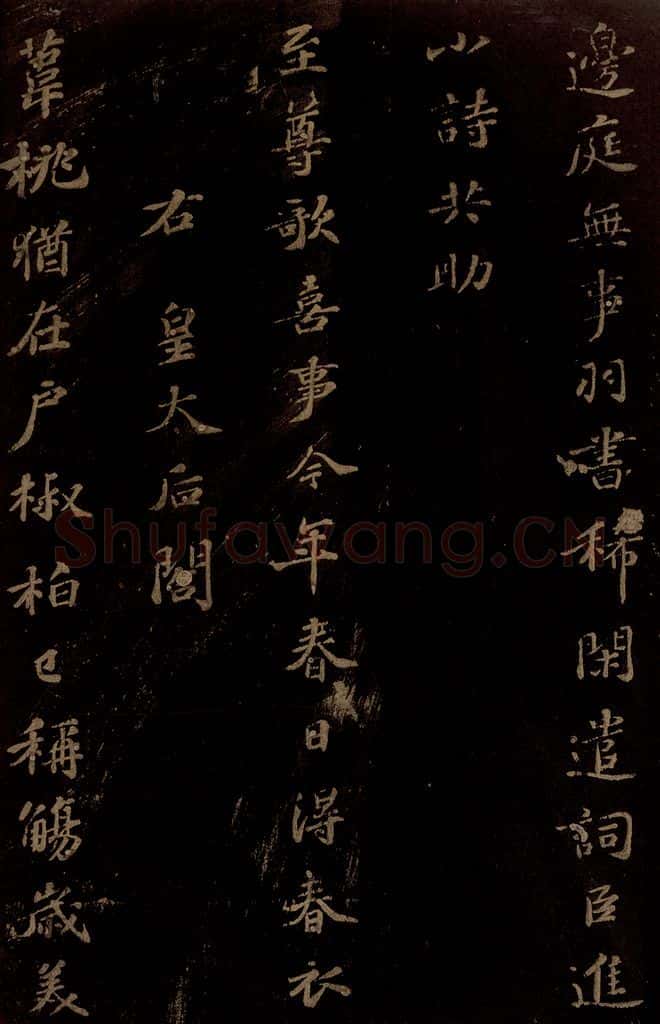 邊庭無事羽書稀閑遣詞臣進
小詩共助
至尊歌喜事今年春日得春衣
右皇太后閤
葦桃猶在戶椒柏已稱觴歲美
Shufawang.CN